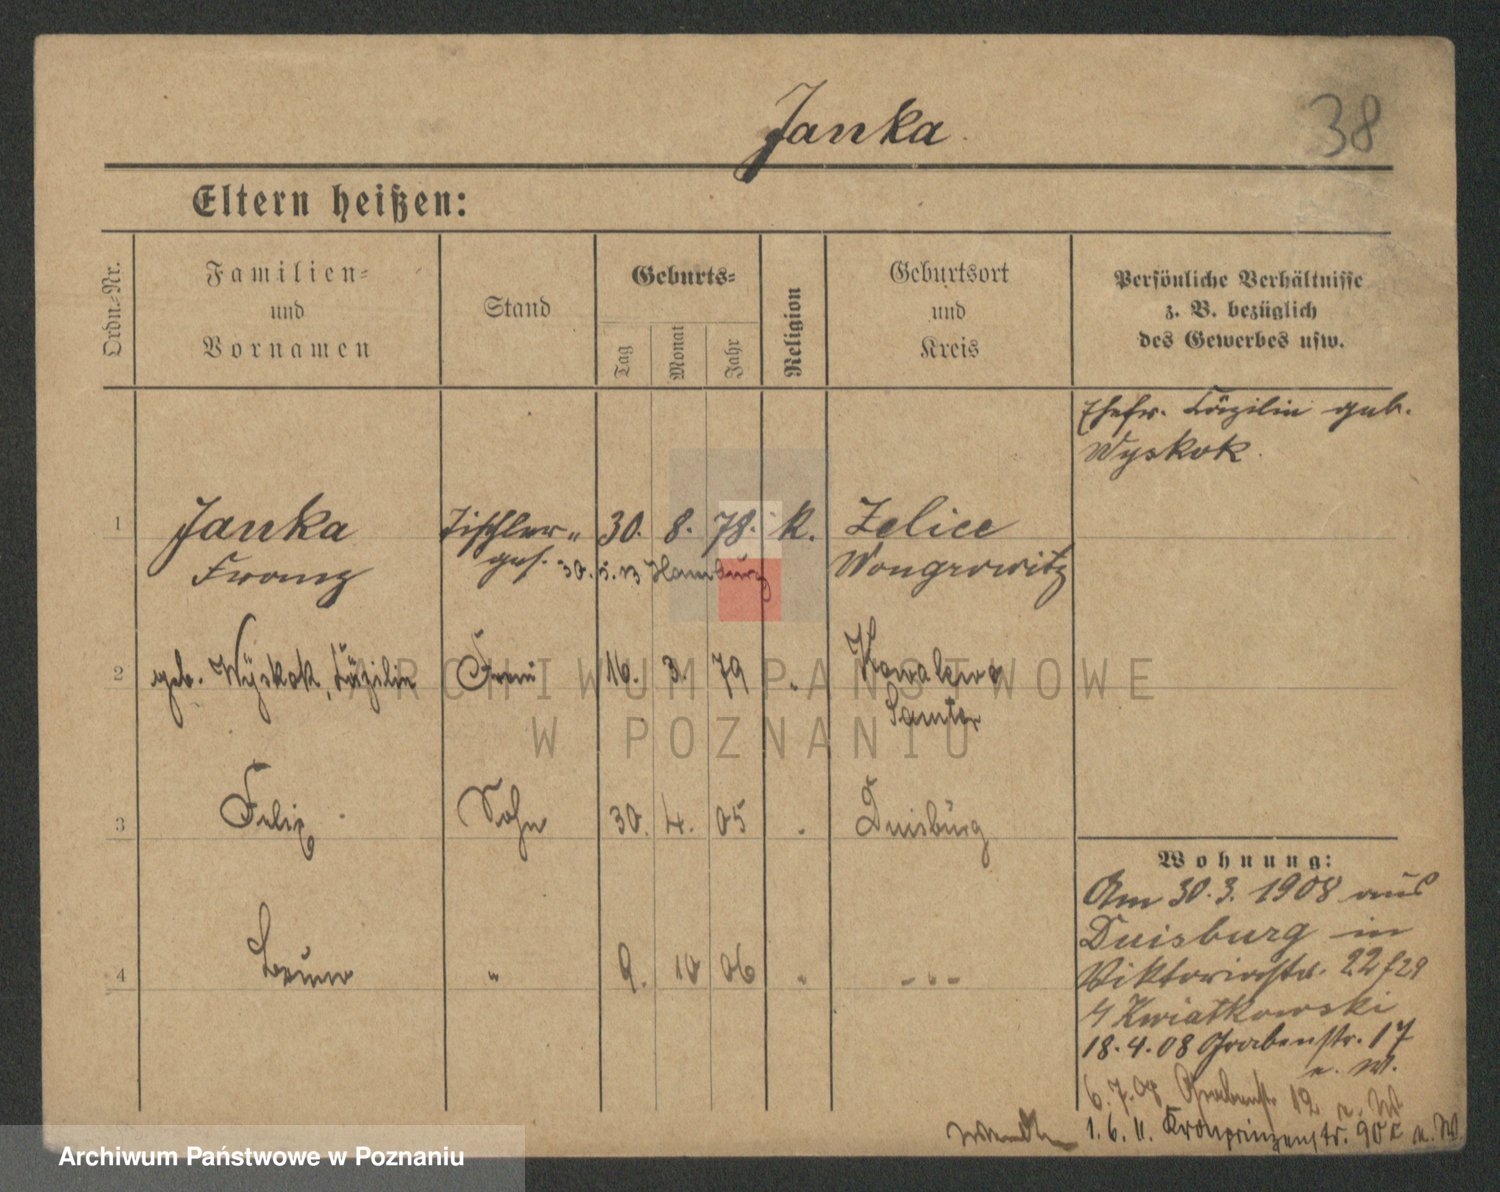 Janka
38
Eltern heißen:
Ordn.-Nr.
Familien-
und
Vornamen
Stand
Geburts-
Tag
Monat
Jahr
Religion
Geburtsort
und
Kreis
Persönliche Verhältnisse
z. B. bezüglich
des Gewerbes usw.
Ehefr. Cäzilie geb.
Wyskok
1 Janka Tischler- 30. 8. 78. K. Zelice
Franz ges. 30. 5. 13 Hamburg Wongrowitz
2 geb. Wyskok, Cäzilie Frau 16. 3. 79 " Kowalewo
Samter
3 Felix Sohn 30. 4. 05 " Duisburg
4 Bruno " 9. 10 06 " - " -
Wohnung:
Am 30.3. 1908 aus
Duisburg in
Viktoriastr. 22
Kwiatkowski
18.4.08 Grabenstr. 17
n. W.
6.7.08 Grabenstr 12 n. W
1.6.11. Kronprinzenstr. 90 n. W.
wenden
ARCHIWUM PAŃSTWOWE
W POZNANIU
Archiwum Państwowe w Poznaniu